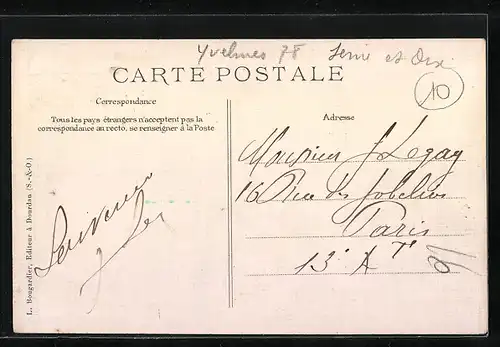 Yvelines 78 Seine et Oise
CARTE POSTALE
10
Correspondance
Tous les pays étrangers n'acceptent pas la
correspondance au recto, se renseigner à la Poste
Souvenir
L. Bougardier, Editeur à Dourdan (S.-&-O.)
Adresse
Monsieur J Legay
16 Rue des Gobelins
Paris
13e Ar